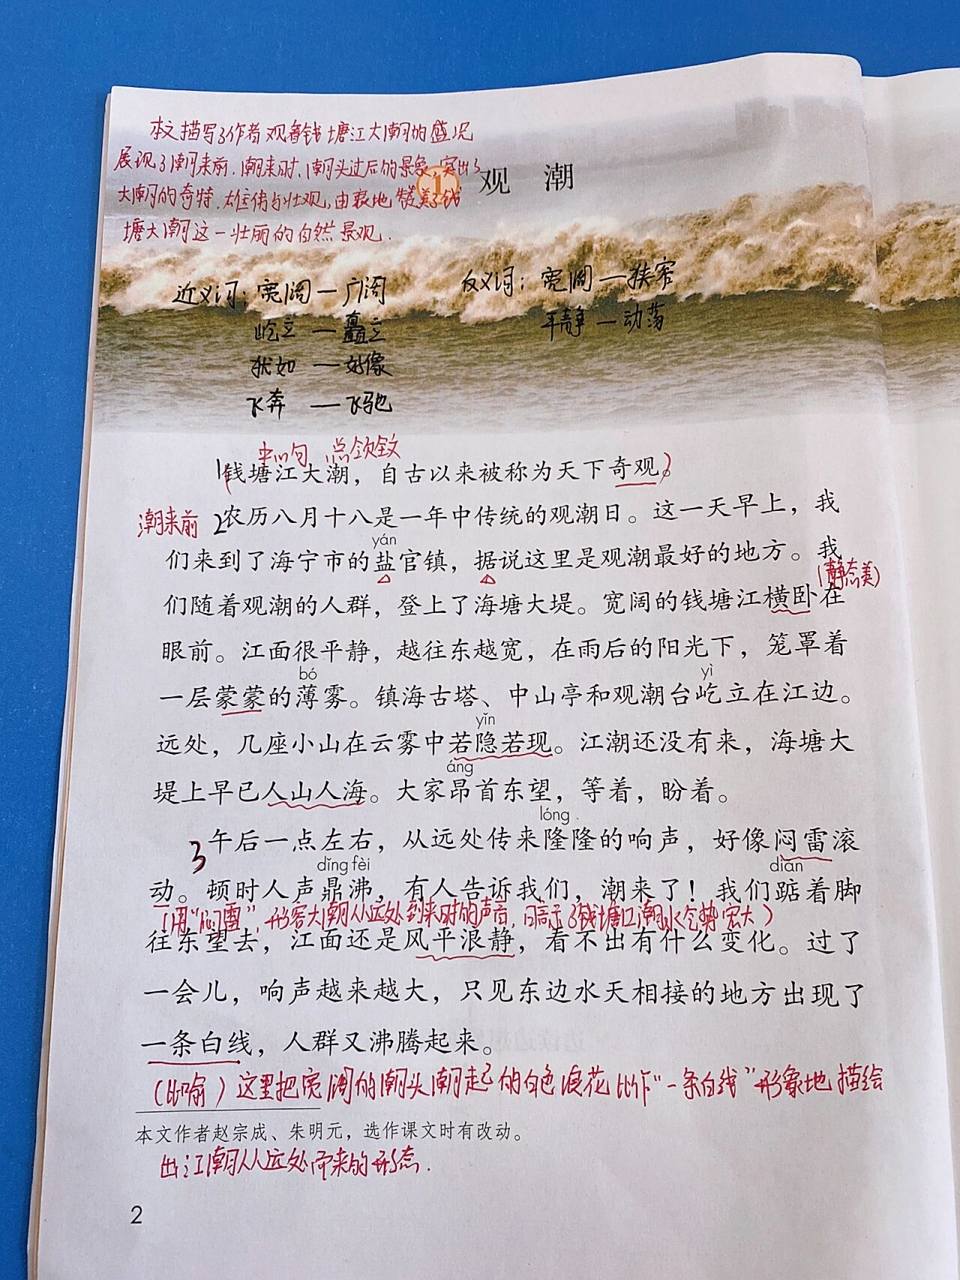 本文描写了作者观看钱塘江大潮的盛况
展现了潮来前、潮来时、潮头过后的景象,突出了
大潮的奇特、雄伟与壮观,由衷地赞美了钱
塘大潮这一壮丽的自然景观.
1 观 潮
近义词:宽阔—广阔
屹立—矗立
犹如—好像
飞奔—飞驰
反义词:宽阔—狭窄
平静—动荡
中心句 总领全文
1钱塘江大潮,自古以来被称为天下奇观。
潮来前 2农历八月十八是一年中传统的观潮日。这一天早上,我
yán
们来到了海宁市的盐官镇,据说这里是观潮最好的地方。我
(静态美)
们随着观潮的人群,登上了海塘大堤。宽阔的钱塘江横卧在
眼前。江面很平静,越往东越宽,在雨后的阳光下,笼罩着
bó yì
一层蒙蒙的薄雾。镇海古塔、中山亭和观潮台屹立在江边。
yǐn
远处,几座小山在云雾中若隐若现。江潮还没有来,海塘大
áng
堤上早已人山人海。大家昂首东望,等着,盼着。
lóng
3 午后一点左右,从远处传来隆隆的响声,好像闷雷滚
dǐng fèi diǎn
动。顿时人声鼎沸,有人告诉我们,潮来了!我们踮着脚
(用“闷雷”,形容大潮从远处到来时的声音,暗示了钱塘江潮水气势宏大)
往东望去,江面还是风平浪静,看不出有什么变化。过了
一会儿,响声越来越大,只见东边水天相接的地方出现了
一条白线,人群又沸腾起来。
(比喻)这里把宽阔的潮头潮起的白色浪花比作“一条白线”形象地描绘
本文作者赵宗成、朱明元,选作课文时有改动。
出江潮从远处而来的形态.
2